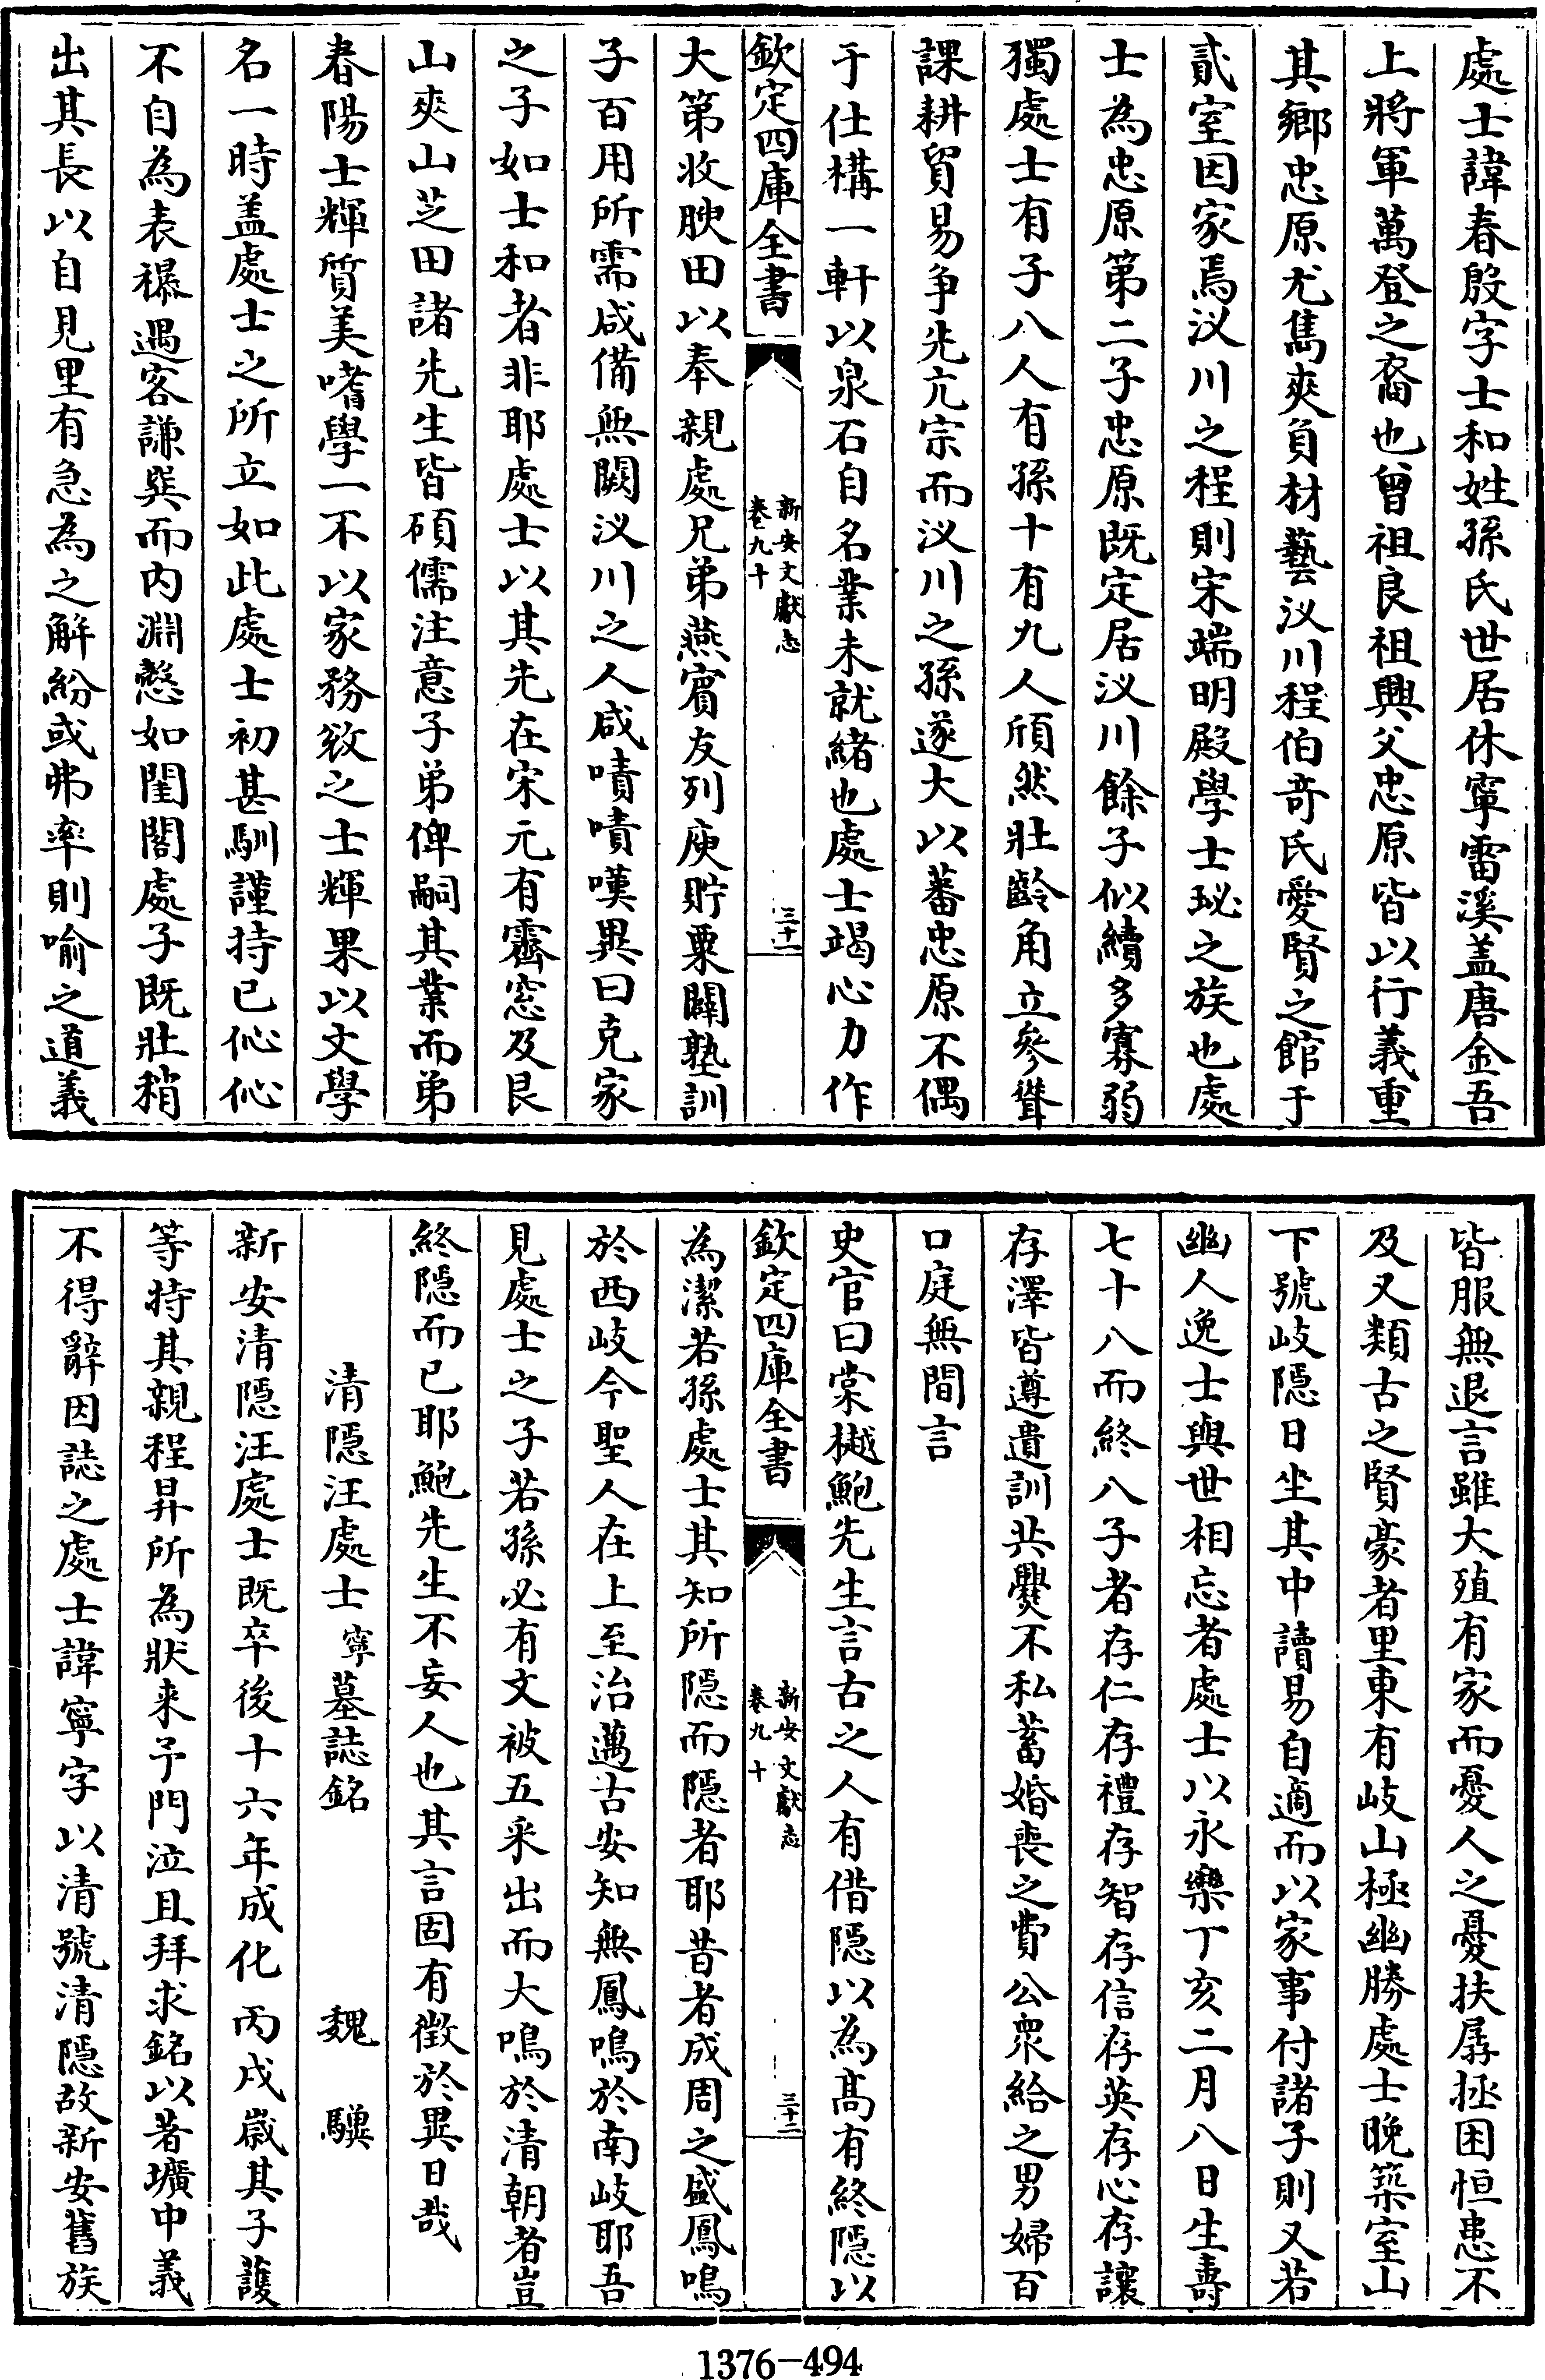 處士諱春殷字士和姓孫氏世居休寧雷溪盖唐金吾
上將軍萬登之裔也曾祖良祖興父忠原皆以行義重
其鄉忠原尤雋爽負材藝汊川程伯奇氏愛賢之館于
貳室因家焉汊川之程則宋端明殿學士珌之族也處
士為忠原第二子忠原既定居汊川餘子似續多寡弱
獨處士有子八人有孫十有九人頎然壯齡角立參聳
課耕貿易爭先亢宗而汊川之孫遂大以蕃忠原不偶
于仕構一軒以泉石自名業未就緒也處士竭心力作
欽定四庫全書
新安文獻志
卷九十
三十一
大第收腴田以奉親處兄弟燕賓友列庾貯粟闢塾訓
子百用所需咸備無闕汊川之人咸嘖嘖嘆異曰克家
之子如士和者非耶處士以其先在宋元有霽窓及艮
山夾山芝田諸先生皆碩儒注意子弟俾嗣其業而弟
春陽士輝質美嗜學一不以家務敓之士輝果以文學
名一時盖處士之所立如此處士初甚馴謹持已伈伈
不自為表襮遇客謙巽而內淵慤如閨閤處子既壯稍
出其長以自見里有急為之解紛或弗率則喻之道義
皆服無退言雖大殖有家而憂人之憂扶孱拯困恒患不
及又類古之賢豪者里東有岐山極幽勝處士晚築室山
下號岐隱日坐其中讀易自適而以家事付諸子則又若
幽人逸士與世相忘者處士以永樂丁亥二月八日生壽
七十八而終八子者存仁存禮存智存信存英存心存讓
存澤皆遵遺訓共爨不私蓄婚喪之費公衆給之男婦百
口庭無間言
史官曰棠樾鮑先生言古之人有借隱以為髙有終隱以
欽定四庫全書
新安文獻志
卷九十
三十二
為潔若孫處士其知所隱而隱者耶昔者成周之盛鳳鳴
於西岐今聖人在上至治邁古安知無鳳鳴於南岐耶吾
見處士之子若孫必有文被五采出而大鳴於清朝者豈
終隱而已耶鮑先生不妄人也其言固有徵於異日哉
清隱汪處士寧墓誌銘 魏驥
新安清隱汪處士既卒後十六年成化丙戌嵗其子護
等持其親程昇所為狀来予門泣且拜求銘以著壙中義
不得辭因誌之處士諱寧字以清號清隱故新安舊族
1376-494